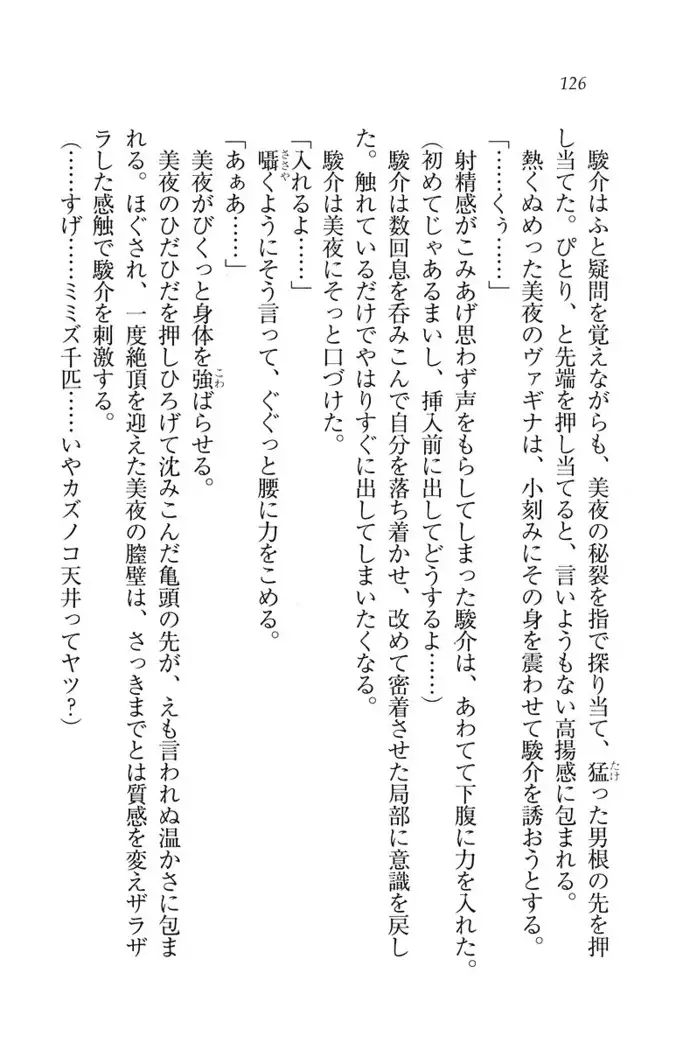 126
駿介はふと疑問を覚えながらも、美夜の秘裂を指で探り当て、猛った男根の先を押
し当てた。ぴとり、と先端を押し当てると、言いようもない高揚感に包まれる。
熱くぬめった美夜のヴァギナは、小刻みにその身を震わせて駿介を誘おうとする。
「……くぅ……」
射精感がこみあげ思わず声をもらしてしまった駿介は、あわてて下腹に力を入れた。
(初めてじゃあるまいし、挿入前に出してどうするよ……)
駿介は数回息を呑みこんで自分を落ち着かせ、改めて密着させた局部に意識を戻し
た。触れているだけでやはりすぐに出してしまいたくなる。
駿介は美夜にそっと口づけた。
「入れるよ……」
囁くようにそう言って、ぐぐっと腰に力をこめる。
「あぁあ……」
美夜がびくっと身体を強ばらせる。
美夜のひだひだを押しひろげて沈みこんだ亀頭の先が、えも言われぬ温かさに包ま
れる。ほぐされ、一度絶頂を迎えた美夜の膣壁は、さっきまでとは質感を変えザラザ
ラした感触で駿介を刺激する。
(……すげ……ミミズ千匹……いやカズノコ天井ってヤツ?)